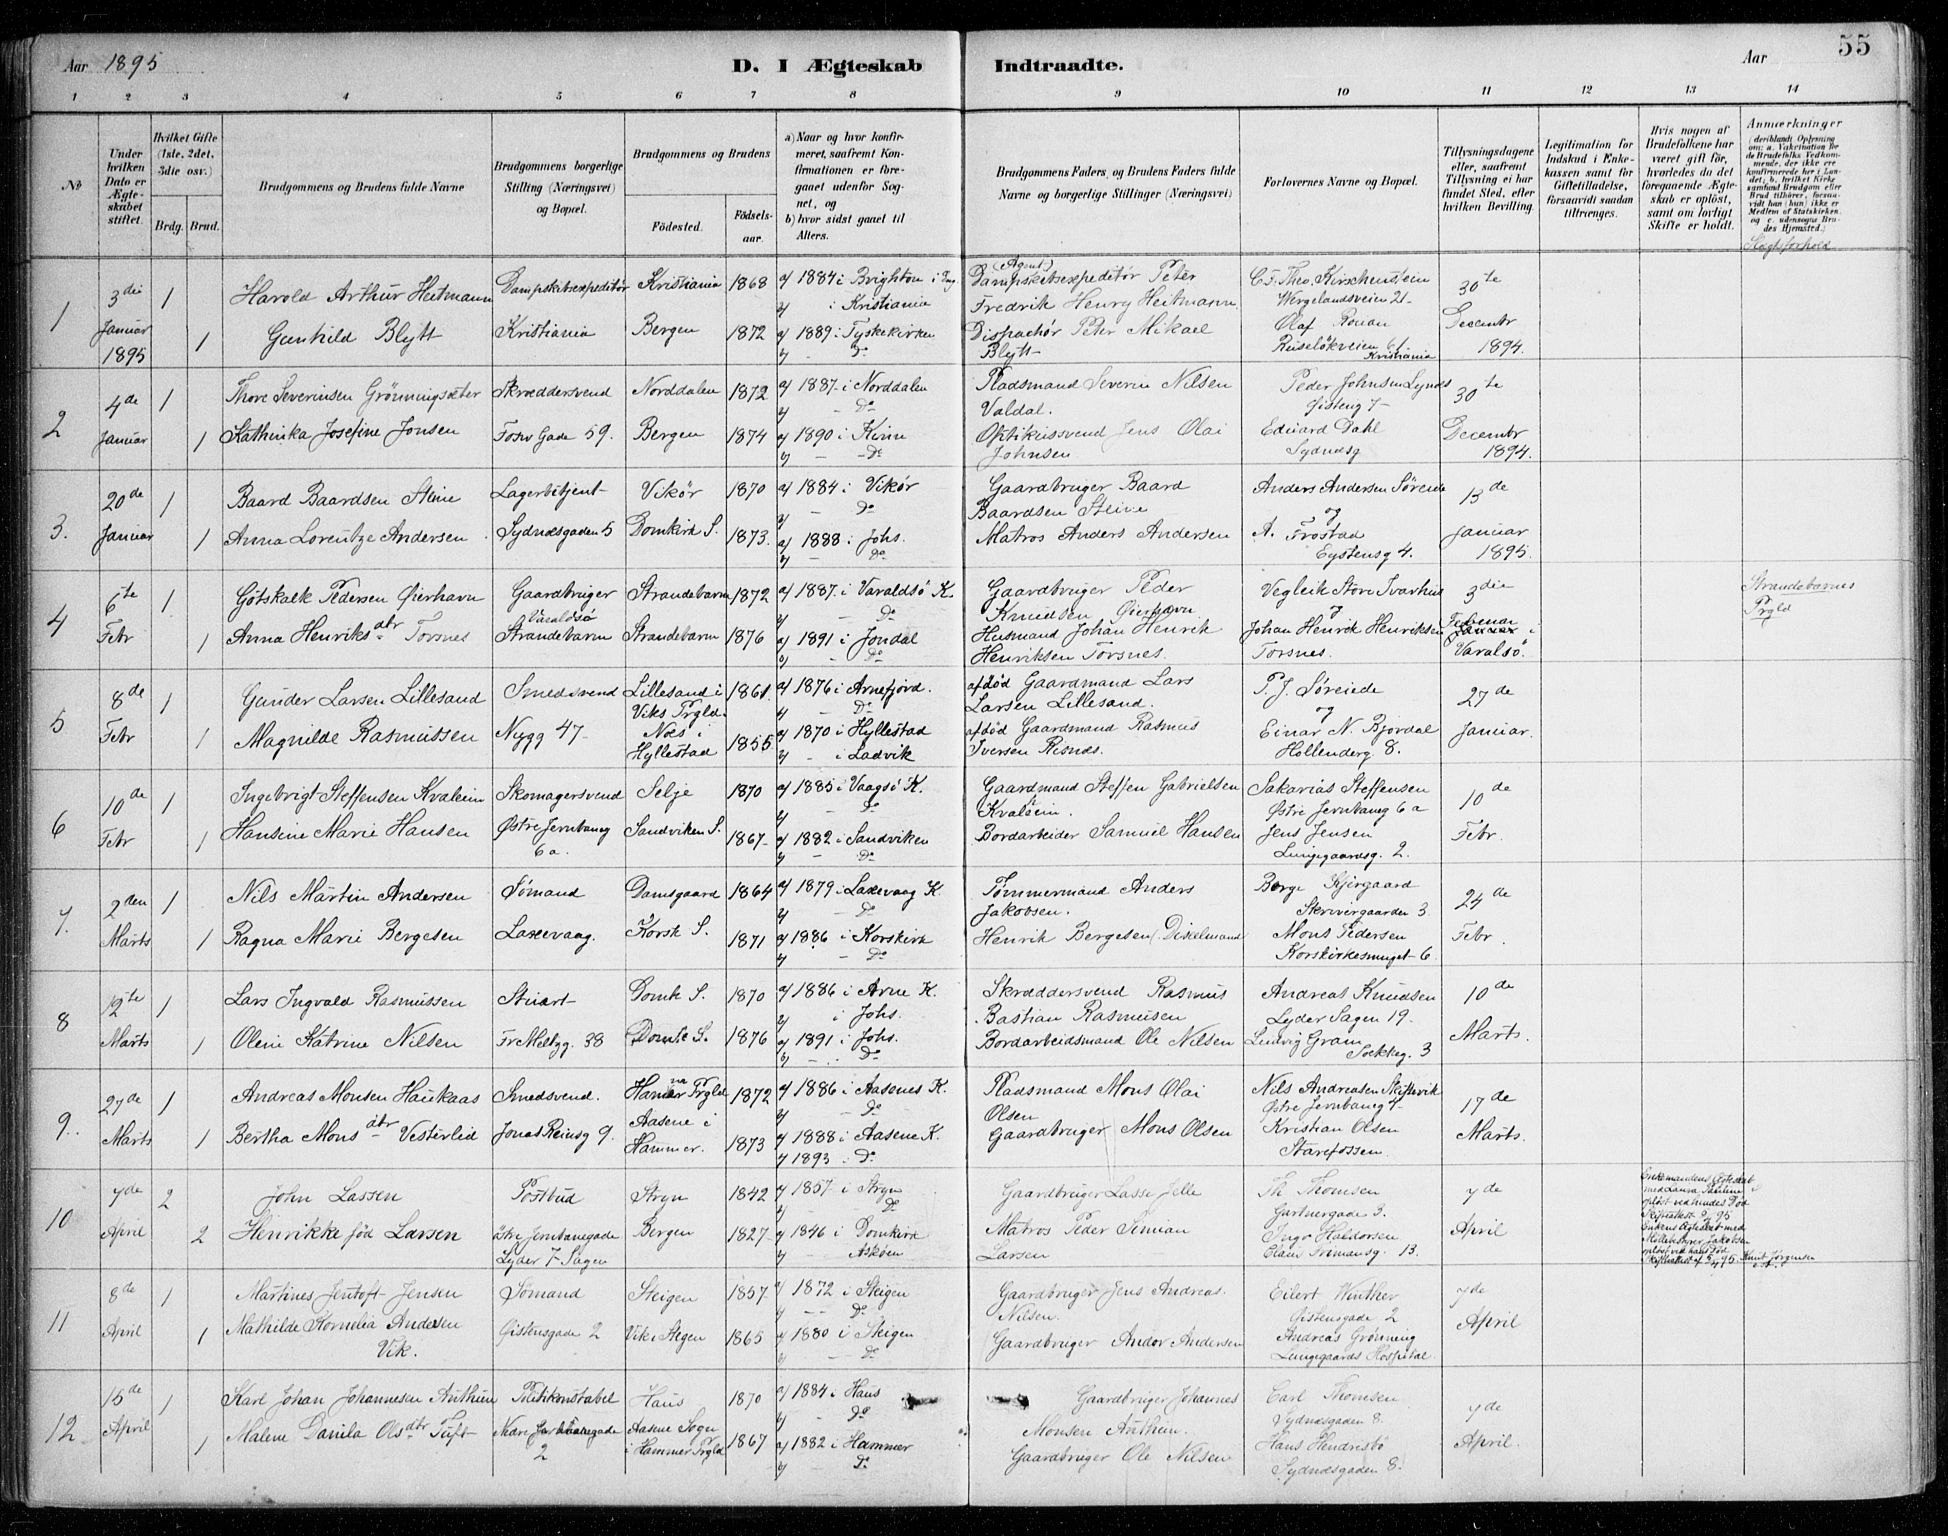 Aar 1895
D. I Ægteskab Indtraadte.
Aar
55
1 2 3 4 5 6 7 8 9 10 11 12 13 14
No
Under hvilken Dato er Ægteskabet stiftet.
Hvilket Gifte (1ste, 2det, 3die osv.)
Brdg. Brud.
Brudgommens og Brudens fulde Navne
Brudgommens borgerlige Stilling (Næringsvei) og Bopæl.
Brudgommens og Brudens
Födested.
Födselsaar.
a) Naar og hvor konfirmeret, saafremt Konfirmationen er foregaaet udenför Sognet, og
b) hvor sidst gaaet til Alters.
Brudgommens Faders, og Brudens Faders fulde Navne og borgerlige Stillinger (Næringsvei)
Forlovernes Navne og Bopæl.
Tillysningsdagene eller, saafremt Tillysning ei har fundet Sted, efter hvilken Bevilling.
Legitimation for Indskud i Enkekassen samt för Giftetilladelse, forsaavidt saadan tiltrænges.
Hvis nogen af Brudefolkene har været gift för, hvorledes da det foregaaende Ægteskab er oplöst, samt om lovligt Skifte er holdt.
Anmærkninger
(deriblandt Oplysning om: a. Vakcination for de Brudefolks Vedkommende, der ikke ere konfirmerede her i Landet; b. hvilket Kirkesamfund Brudgom eller Brud tilhører, forsaavidt han (hun) ikke er Medlem af Statskirken, og c. udensogns Brudes Hjemsted.)
Slægtsforhold
1
3die Januar 1895
1
Harold Arthur Heitmann
Dampskibsexpeditør
Kristiania
1868
a/ 1884 i Brighton i Eng
b/ i Kristiania
(Agent)
Dampskibsexpeditør Peter
Fredrik Henry Heitmann
C. F. Theo. Kirschenstein
Wergelandsveien 21-
30te
Decembr
1894.
1
Gunhild Blytt
Kristiania
Bergen
1872
a/ 1889 i Tyskekirken
b/ - Do
Dispachør Peter Mikael
Blytt
Olaf Rouan
Ruseløkveien 61-
Kristiania
2
4de Januar
1
Thore Severinsen Grønningsæter
Skræddersvend
Norddalen
1872
a/ 1887 i Norddalen
b/ - Do
Pladsmand Severin Nilsen
Valdal.
Peder Johnsen Lynds
Øisteng 7-
30te
Decembr
1894.
1
Kathinka Josefine Jonsen
Fosw Gade 59.
Bergen
1874
a/ 1890 i Kinn
b/ - Do
Optikussvend Jens Olai
Johnsen
Eduard Dahl
Sydnæsg
3.
20de Januar
1
Baard Baardsen Steine
Lagerbetjent
Vikør
1870
a/ 1884 i Vikør
b/ - Do
Gaardbruger Baard
Baardsen Steine
Anders Andersen Søreide
og
13de
Januar
1895.
1
Anna Lorentze Andersen
Sydnæsgaden 5
Domkirk S.
1873.
a/ 1888 i Johs.
b/ - Do
Matros Anders Andersen
A. Frostad
Eystensg 4.
4
6te Febr
1
Götskalk Pedersen Øierhavn
Gaardbruger
Varaldsø
Strandebarm
1872
a/ 1887 i Varaldsø K.
b/ - Do
Gaardbruger Peder
Knudsen Øierhavn
Vegleik Store Ivarhus
og
3die
Februar
Januar i
Varalsø.
Strandebarnes
Prgld
1
Anna Henriksdtr Torsnes
Strandebarm
Strandebarm
1876
a/ 1891 i Jondal
b/ - Do
Husmand Johan Henrik
Henriksen Torsnes.
Johan Henrik Henriksen
Torsnes.
5
8de Febr
1
Gunder Larsen Lillesand
Smedsvend
Lillesand i
Viks Prgld.
1861.
a/ 1876 i Arnefjord.
b/ - Do
afdød Gaardmand Lars
Larsen Lillesand.
P. J. Søreide
og
27de
Januar.
1
Magnilde Rasmussen
Nygg 47-
Næs i
Hyllestad
1855
a/ 1870 i Hyllestad
b/ - i Ladvik
afdød Gaardmand Rasmus
Iversen Risnæs.
Einar N. Bjordal
Hollenderg 8.
6
10de Febr
1
Ingebrigt Steffensen Kvalein
Skomagersvend
Selje
1870
a/ 1885 i Vaagsø K.
b/ - Do
Gaardmand Steffen Gabrielsen
Kvalein.
Sakarias Steffensen
Østre Jernbaneg 6 a
10de
Febr.
1
Hansine Marie Hansen
Østre Jernbaneg
6 a.
Sandviken S.
1867-
a/ 1882 i Sandviken
b/ - Do
Bordarbeider Samuel Hansen
Jens Jensen
Lungegaardsg. 2.
7.
2den Marts
1
Nils Martin Andersen
Sømand
Damsgaard
1864
a/ 1879 i Laxevaag K.
b/ - Do
Tømmermand Anders
Jakobsen.
Børge Kjergaard
Skrivergaarden 3
24de
Febr.
1
Ragna Marie Bergesen
Laxevaag.
Korsk S.
1871
a/ 1886 i Korskirk
b/ - Do
Henrik Bergesen, Dixelmand
Mons Pedersen
Korskirkesmuget 6
8
12te Marts
1
Lars Ingvald Rasmussen
Stuart
Domk S.
1870
a/ 1886 i Arne K.
b/ i Johs.
Skræddersvend Rasmus
Bastian Rasmusen
Andreas Knudsen
Lyder Sagen 19.
10de
Marts.
1
Oleni Katrine Nilsen
Fr Meltzg. 38
Domk S.
1876
a/ 1891 i Johs.
b/ - Do
Bordarbeidsmand Ole Nilsen
Ludvig Gram
9.
27de Marts
1
Andreas Monsen Haukaas
Smedsvend.
Hamar Prgld
1872
a/ 1886 i Aasenes K.
b/ - Do
Pladsmand Mons Olai
Olsen
Nils Andreasen
Østre Jernbaneg 4-
17de
Marts.
1
Bertha Monsdtr Vesterlid
Jonas Reinsg 9.
Aasene i
Hammer.
1873
a/ 1888 i Aasene K.
b/ 1893 - Do
Gaardbruger Mons Olsen
Kristian Olsen
Starefossen.
10
7de April
2
John Lassen
Postbud
Stryn
1842
a/ 1857 i Stryn
Do
Gaardbruger Lasse Jelle
Th Thomsen
Gartnergade 3.
7de
April
Enkemandens Ægteskab
med Laura Pauline
opløst ved hendes Død
Skifteattest
Enkens Ægteskab med
Jakobsen
opløst ved hans Død
2
Henrikke fød Larsen
Østre Jernbanegade
Lyder 7 Sagen
Bergen
1827
a/ 1846 i Domkirk
b/ - Askøen
Matros Peder Simian
Larsen
Ingv Haldorsen
13.
11
8de April
1
Martines Jentoft Jensen
Sømand
Steigen
1857.
a/ 1872 i Steigen
b/ - - Do
Gaardbruger Jens Andreas
Nilsen.
Eilert Winther
Øistensgade 2
7de
April
1
Mathilde Kornelia Andersen
Vik.
Øistensgade 2
Vik i Stegen
1865
a/ 1880 i Steigen
b/ - Do
Gaardbruger Andor Andersen
Andreas Grønning
Lungegaards Hospital.
12
15de April
1
Karl Johan Johannesen Anthun
Politikonstabel
Haus
1870
a/ 1884 i Haus
b/ - Do
Gaardbruger Johannes
Monsen Anthun.
Carl Thomsen
Sydnæsgaden 8.
7de
April.
1
Malene Danila Olsdtr Tuft
Nedre Jernbanegade
2
Aasene Sogn
i Hammer Prgld
1867
a/ 1882 i Hammer
b/ Do
Gaardbruger Ole Nilsen
Hans Hendresbø
Sydnæsgaden 8.